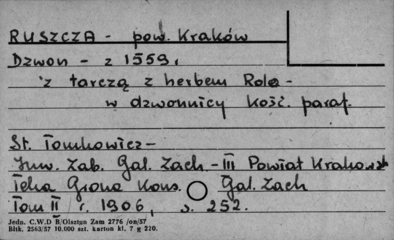 RUSZCZA - pow. Kraków
Dzwon - z 1559 r
z tarczą z herbem Rola -
w dzwonnicy kość. paraf.
St. Tomkowicz -
Inw. Zab. Gal. Zach - III Powiat Krakowsk
Teka Grona Kons. Gal. Zach
Tom II r. 1906, s. 252.
Jedn. C.W.D B/Olsztyn Zam 2776 /on/57
Bltk. 2563/57 10.000 szt. karton kl. 7 g 220.